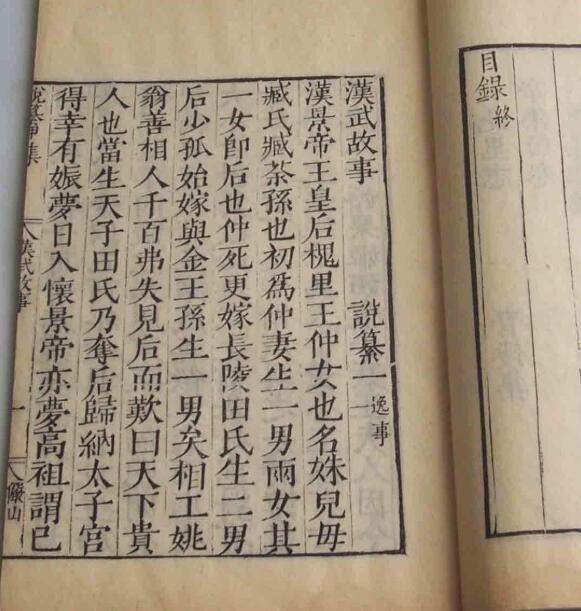 目錄終
漢武故事 說纂一 逸事
漢景帝王皇后槐里王仲女也名姝兒母
臧氏臧荼孫也初爲仲妻生一男兩女其
一女卽后也仲死更嫁長陵田氏生二男
后少孤始嫁與金王孫生一男矣相工姚
翁善相人千百弗失見后而歎曰天下貴
人也當生天子田氏乃奪后歸納太子宮
得幸有娠夢日入懷景帝亦夢高祖謂已
集 漢武故事 一 儼山